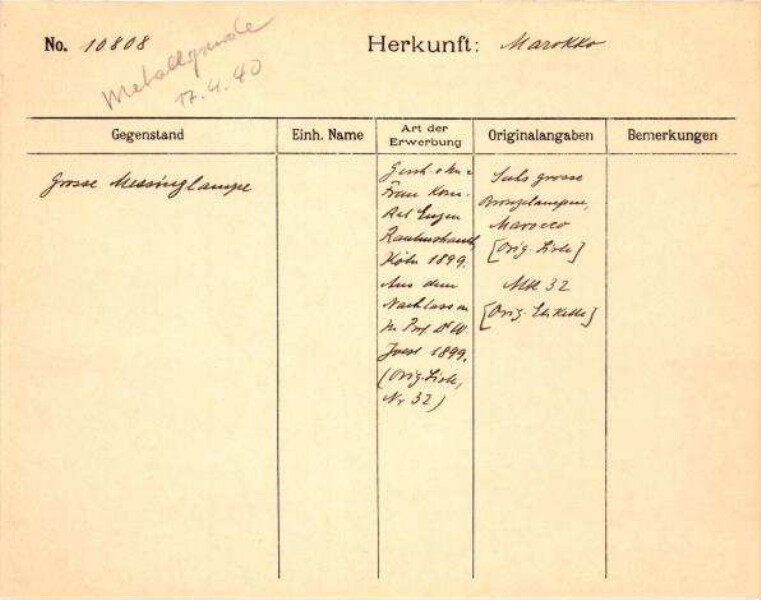 No. 10808
Herkunft: Marokko
Metallspende
17.4.40
Gegenstand
Einh. Name
Art der
Erwerbung
Originalangaben
Bemerkungen
Grosse Messinglampe
Gesch.
Frau Kom.
Rat Eugen
Rautenstrauch
Köln 1899.
Aus dem
Nachlass
Prof. Dr W.
Joest 1899.
(Orig. Liste,
Nr 32)
Sechs grosse
Bronzelampen,
Marocco
[Orig. Liste]
MK 32
[Orig. Etikette]